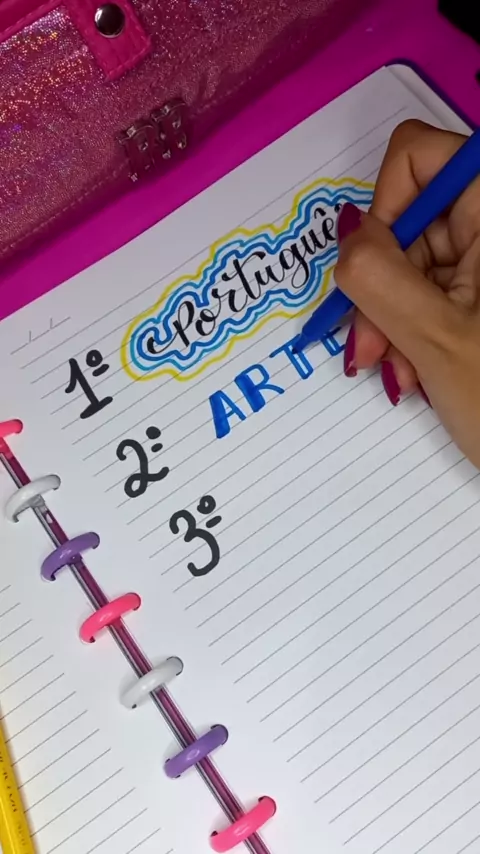 1º Português
2º ARTE
3º